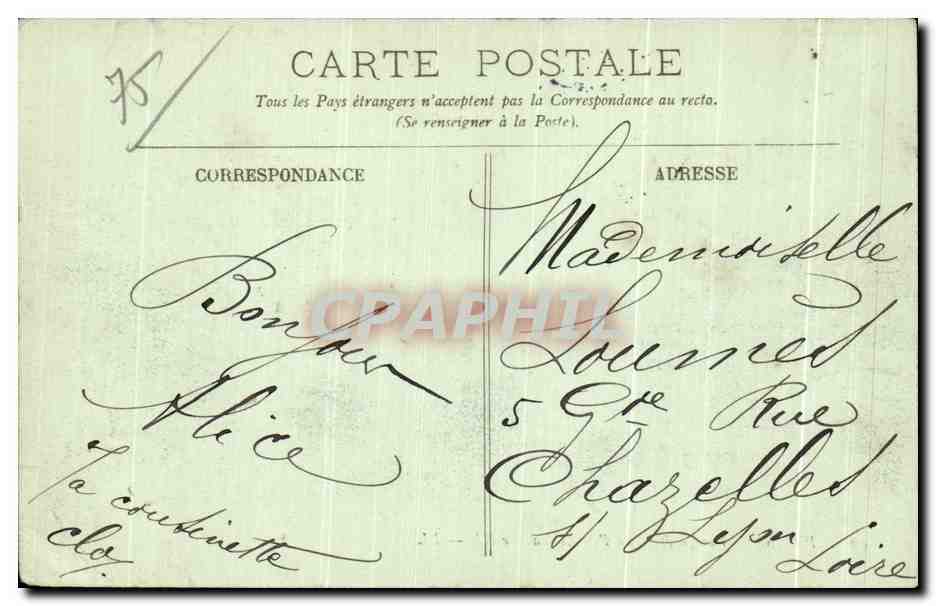 75
CARTE POSTALE
Tous les Pays étrangers n'acceptent pas la Correspondance au recto.
(Se renseigner à la Poste).
CORRESPONDANCE
Bonjour
Alice
Ta cousinette
ADRESSE
Mademoiselle
Loumès
5 Gde Rue
Chazelles
s/ Lyon
Loire
CPAPHIL